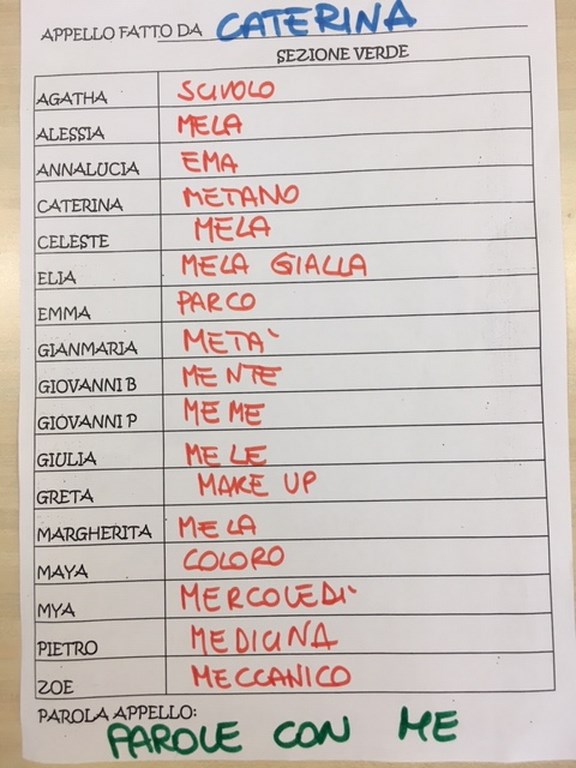 APPELLO FATTO DA CATERINA
SEZIONE VERDE
AGATHA SCIVOLO
ALESSIA MELA
ANNALUCIA EMA
CATERINA METANO
CELESTE MELA
ELIA MELA GIALLA
EMMA PARCO
GIANMARIA META'
GIOVANNI B MENTE
GIOVANNI P MEME
GIULIA MELE
GRETA MAKE UP
MARGHERITA MELA
MAYA COLORO
MYA MERCOLEDI'
PIETRO MEDICINA
ZOE MECCANICO
PAROLA APPELLO:
PAROLE CON ME